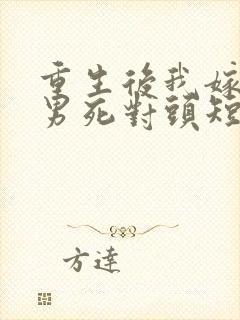 重生後我嫁
男死對頭短
方達